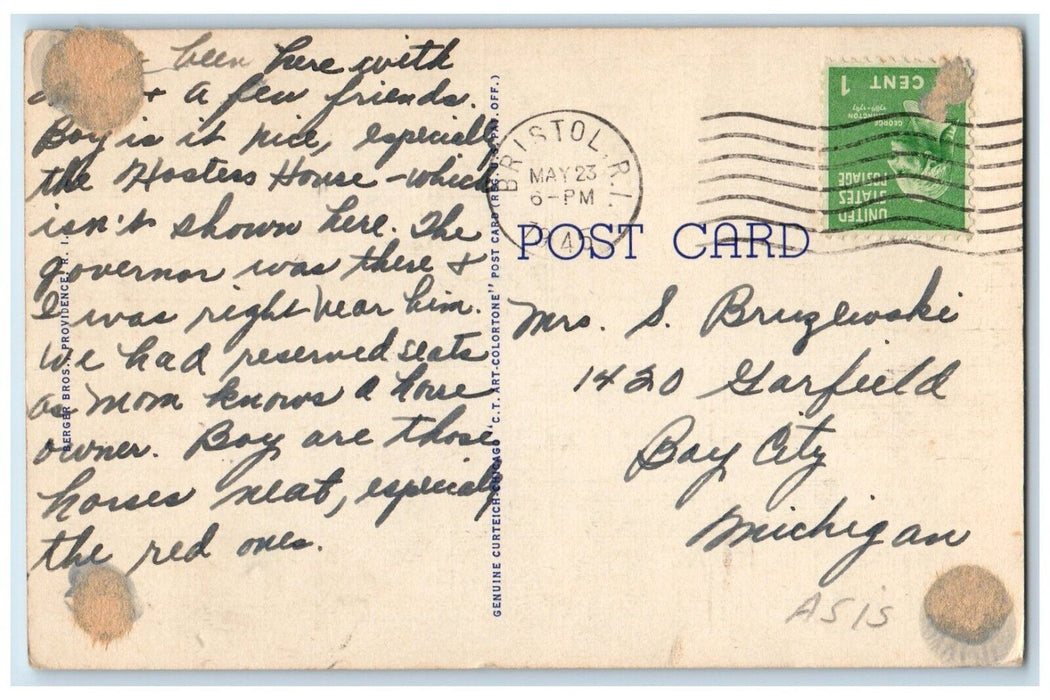 been here with
+ a few friends.
Boy is it nice, especially
the Hostess House - which
isn't shown here. The
governor was there &
I was right near him.
We had reserved seats
as Mom knows a horse
owner. Boy are those
horses neat, especially
the red ones.
BERGER BROS., PROVIDENCE, R. I.
GENUINE CURTEICH-CHICAGO "C.T. ART-COLORTONE" POST CARD (REG. U.S. PAT. OFF.)
BRISTOL, R.I.
MAY 23
6-PM
1 CENT
GEORGE
WASHINGTON
1789-1797
UNITED
STATES
POSTAGE
POST CARD
Mrs. S. Bruzlewski
1420 Garfield
Bay City
Michigan
AS IS